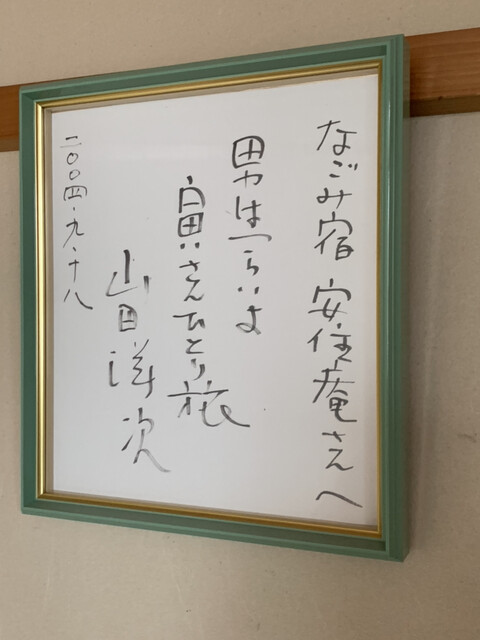 なごみ宿 安住庵さんへ
男はつらいよ
寅さんひとり旅
山田洋次
二〇〇四.九.十八